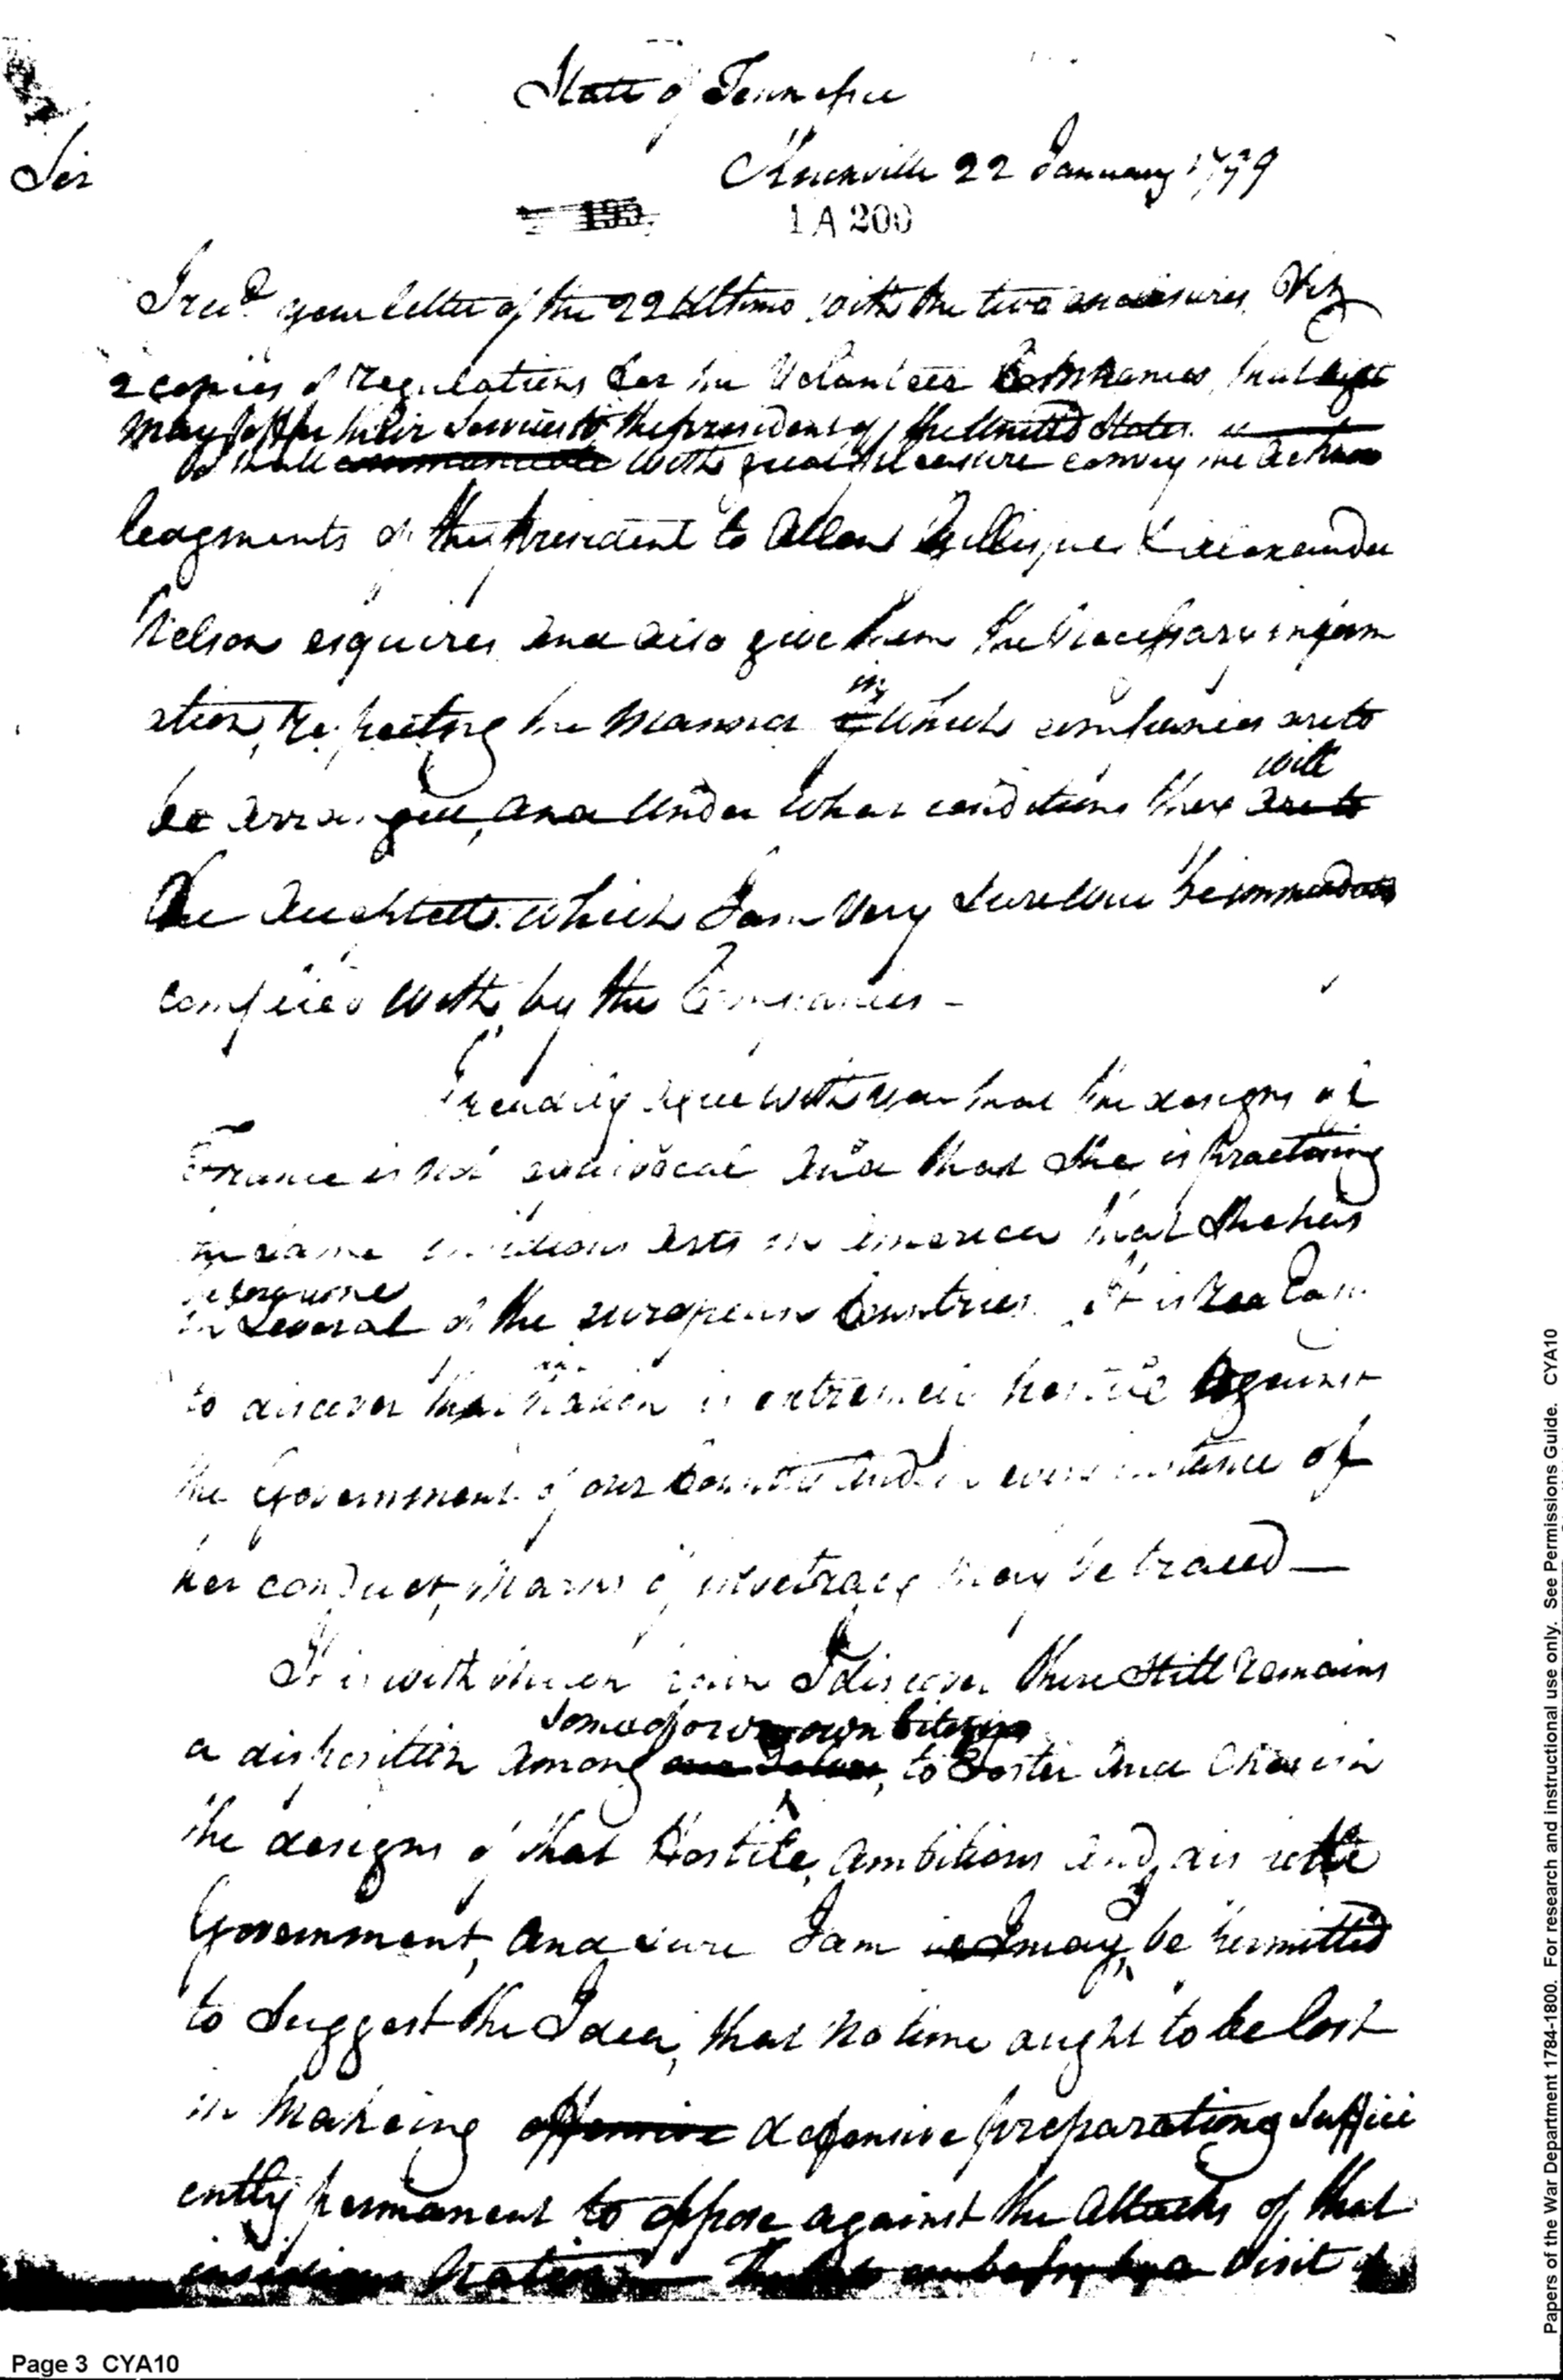 State of Tennessee
Sir
Knoxville 22 January 1799
195.
1 A 200
I recd your letter of the 22 Ultimo with the two enclosures, Viz
2 copies of regulations for the Volunteer Companies, that
may offer their Services to the president of the United States.
I shall communicate with great pleasure convey the acknow
ledgments of the President to Allen Gillespie & Alexander
Nelson esquires and also give them the necessary inform
ation, respecting the manner in which companies are to
be arranged, and under what conditions they are to will
be accepted. which I am very sure will be immediately
complied with by the Companies -
I readily agree with you that the designs of
France is not equivocal and that she is practising
the same insidious arts in America that she has
in several of the european Countries. It is
to discover that nation is extremely hostile against
the Government of our Country and in every instance of
her conduct, marks of inveteracy may be traced —
It is with much pain I discover there still remains
some of our own citizens
a disposition among our Selves, to foster and cherish
the designs of that Hostile, ambitious and
Government, and sure I am I may be permitted
to suggest the Idea, that no time aught to be lost
in makeing offensive defensive preparations suffici
ently permanent to oppose against the attacks of that
insidious Nation — visit
Page 3 CYA10
Papers of the War Department 1784-1800. For research and instructional use only. See Permissions Guide. CYA10